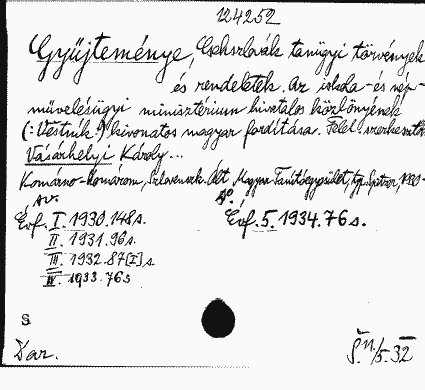 124252
Gyűjteménye, Csehszlovák tanügyi törvények
és rendeletek. Az iskola- és nép-
művelésügyi minisztérium hivatalos közlönyének
(:Vestník:) kivonatos magyar fordítása. Felel. szerkesztő:
Vásárhelyi Károly...
Komárno-Komárom, Szlovenszk. Ált. Magyar Tanítóegyesület, 1930-
Évf. I. 1930. 148 s.
II. 1931. 96 s.
III. 1932. 87[I] s.
IV. 1933. 76 s
Évf. 5. 1934. 76 s.
S
Dar.